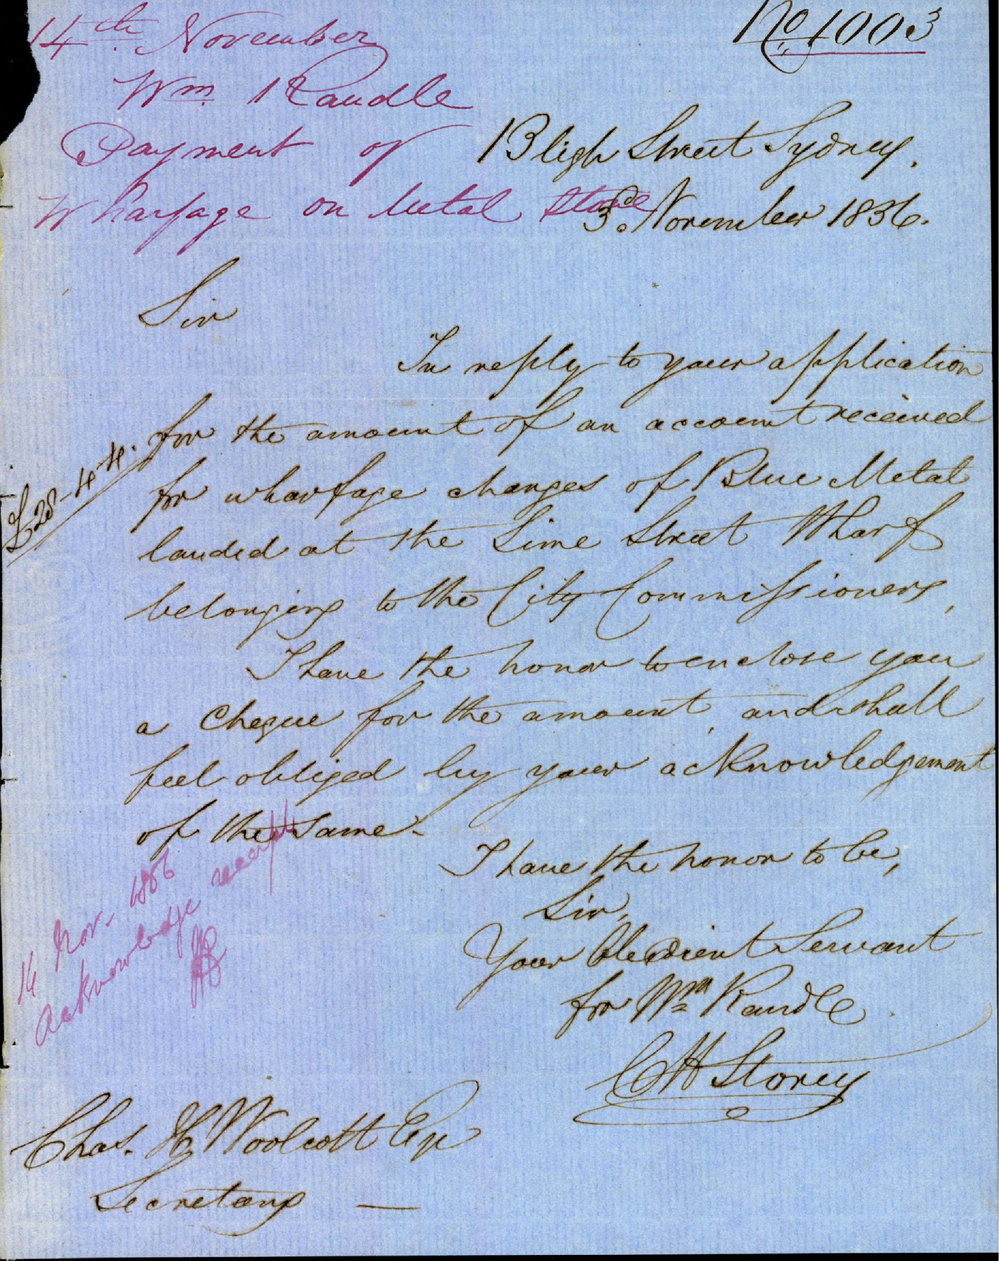 14th November
Wm Randle
Payment of
Wharfage on Metal Stone
No. 1003
Bligh Street Sydney.
3d. November 1836.
Sir
In reply to your application
for the amount of an account received
for wharfage charges of Blue Metal
landed at the Lime Street Wharf
belonging to the City Commissioners,
£28-4-4.
I have the honor to enclose you
a cheque for the amount, and shall
feel obliged by your acknowledgement
of the same.-
I have the honor to be,
Sir,
Your Obedient Servant
for Wm Randle
CH Storey
14 Nov. 1856
Acknowledge receipt
Chas. H Woolcott Esqe
Secretary —